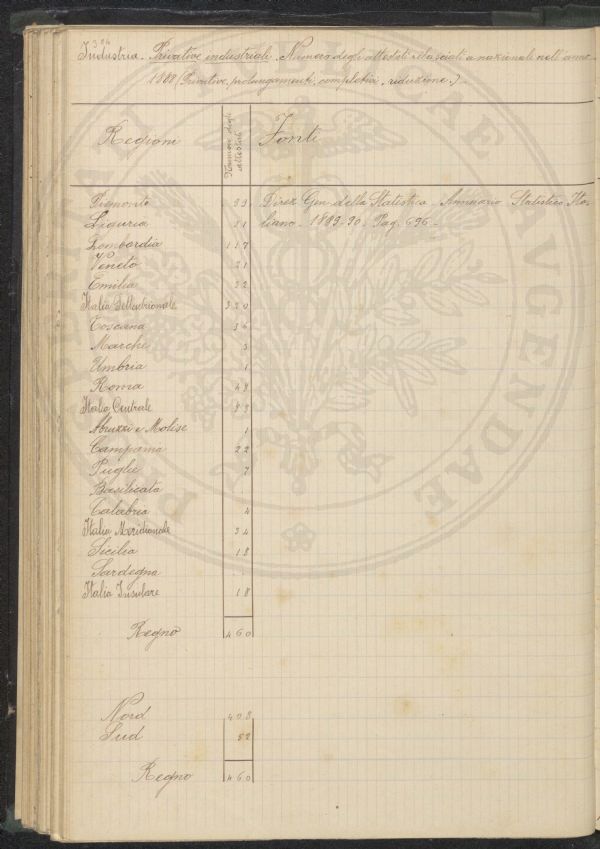 304
Industria - Privative industriali. Numero degli attestati rilasciati a nazionali nell'anno
1888 (Privative, prolungamenti, completivi, riduzione.)
Regioni
Numero degli
attestati
Fonti
Piemonte Direz. Gen. della Statistica - Annuario Statistico Ita-
Liguria liano - 1889-90. Pag. 696 -
Lombardia 117
Veneto 21
Emilia 32
Italia Settentrionale 320
Toscana 36
Marche 3
Umbria 1
Roma 48
Italia Centrale 88
Abruzzi e Molise 1
Campania 22
Puglie 7
Basilicata .
Calabria 4
Italia Meridionale 34
Sicilia 18
Sardegna .
Italia Insulare 18
Regno 460
Nord 408
Sud 52
Regno 460
AUGENDAE